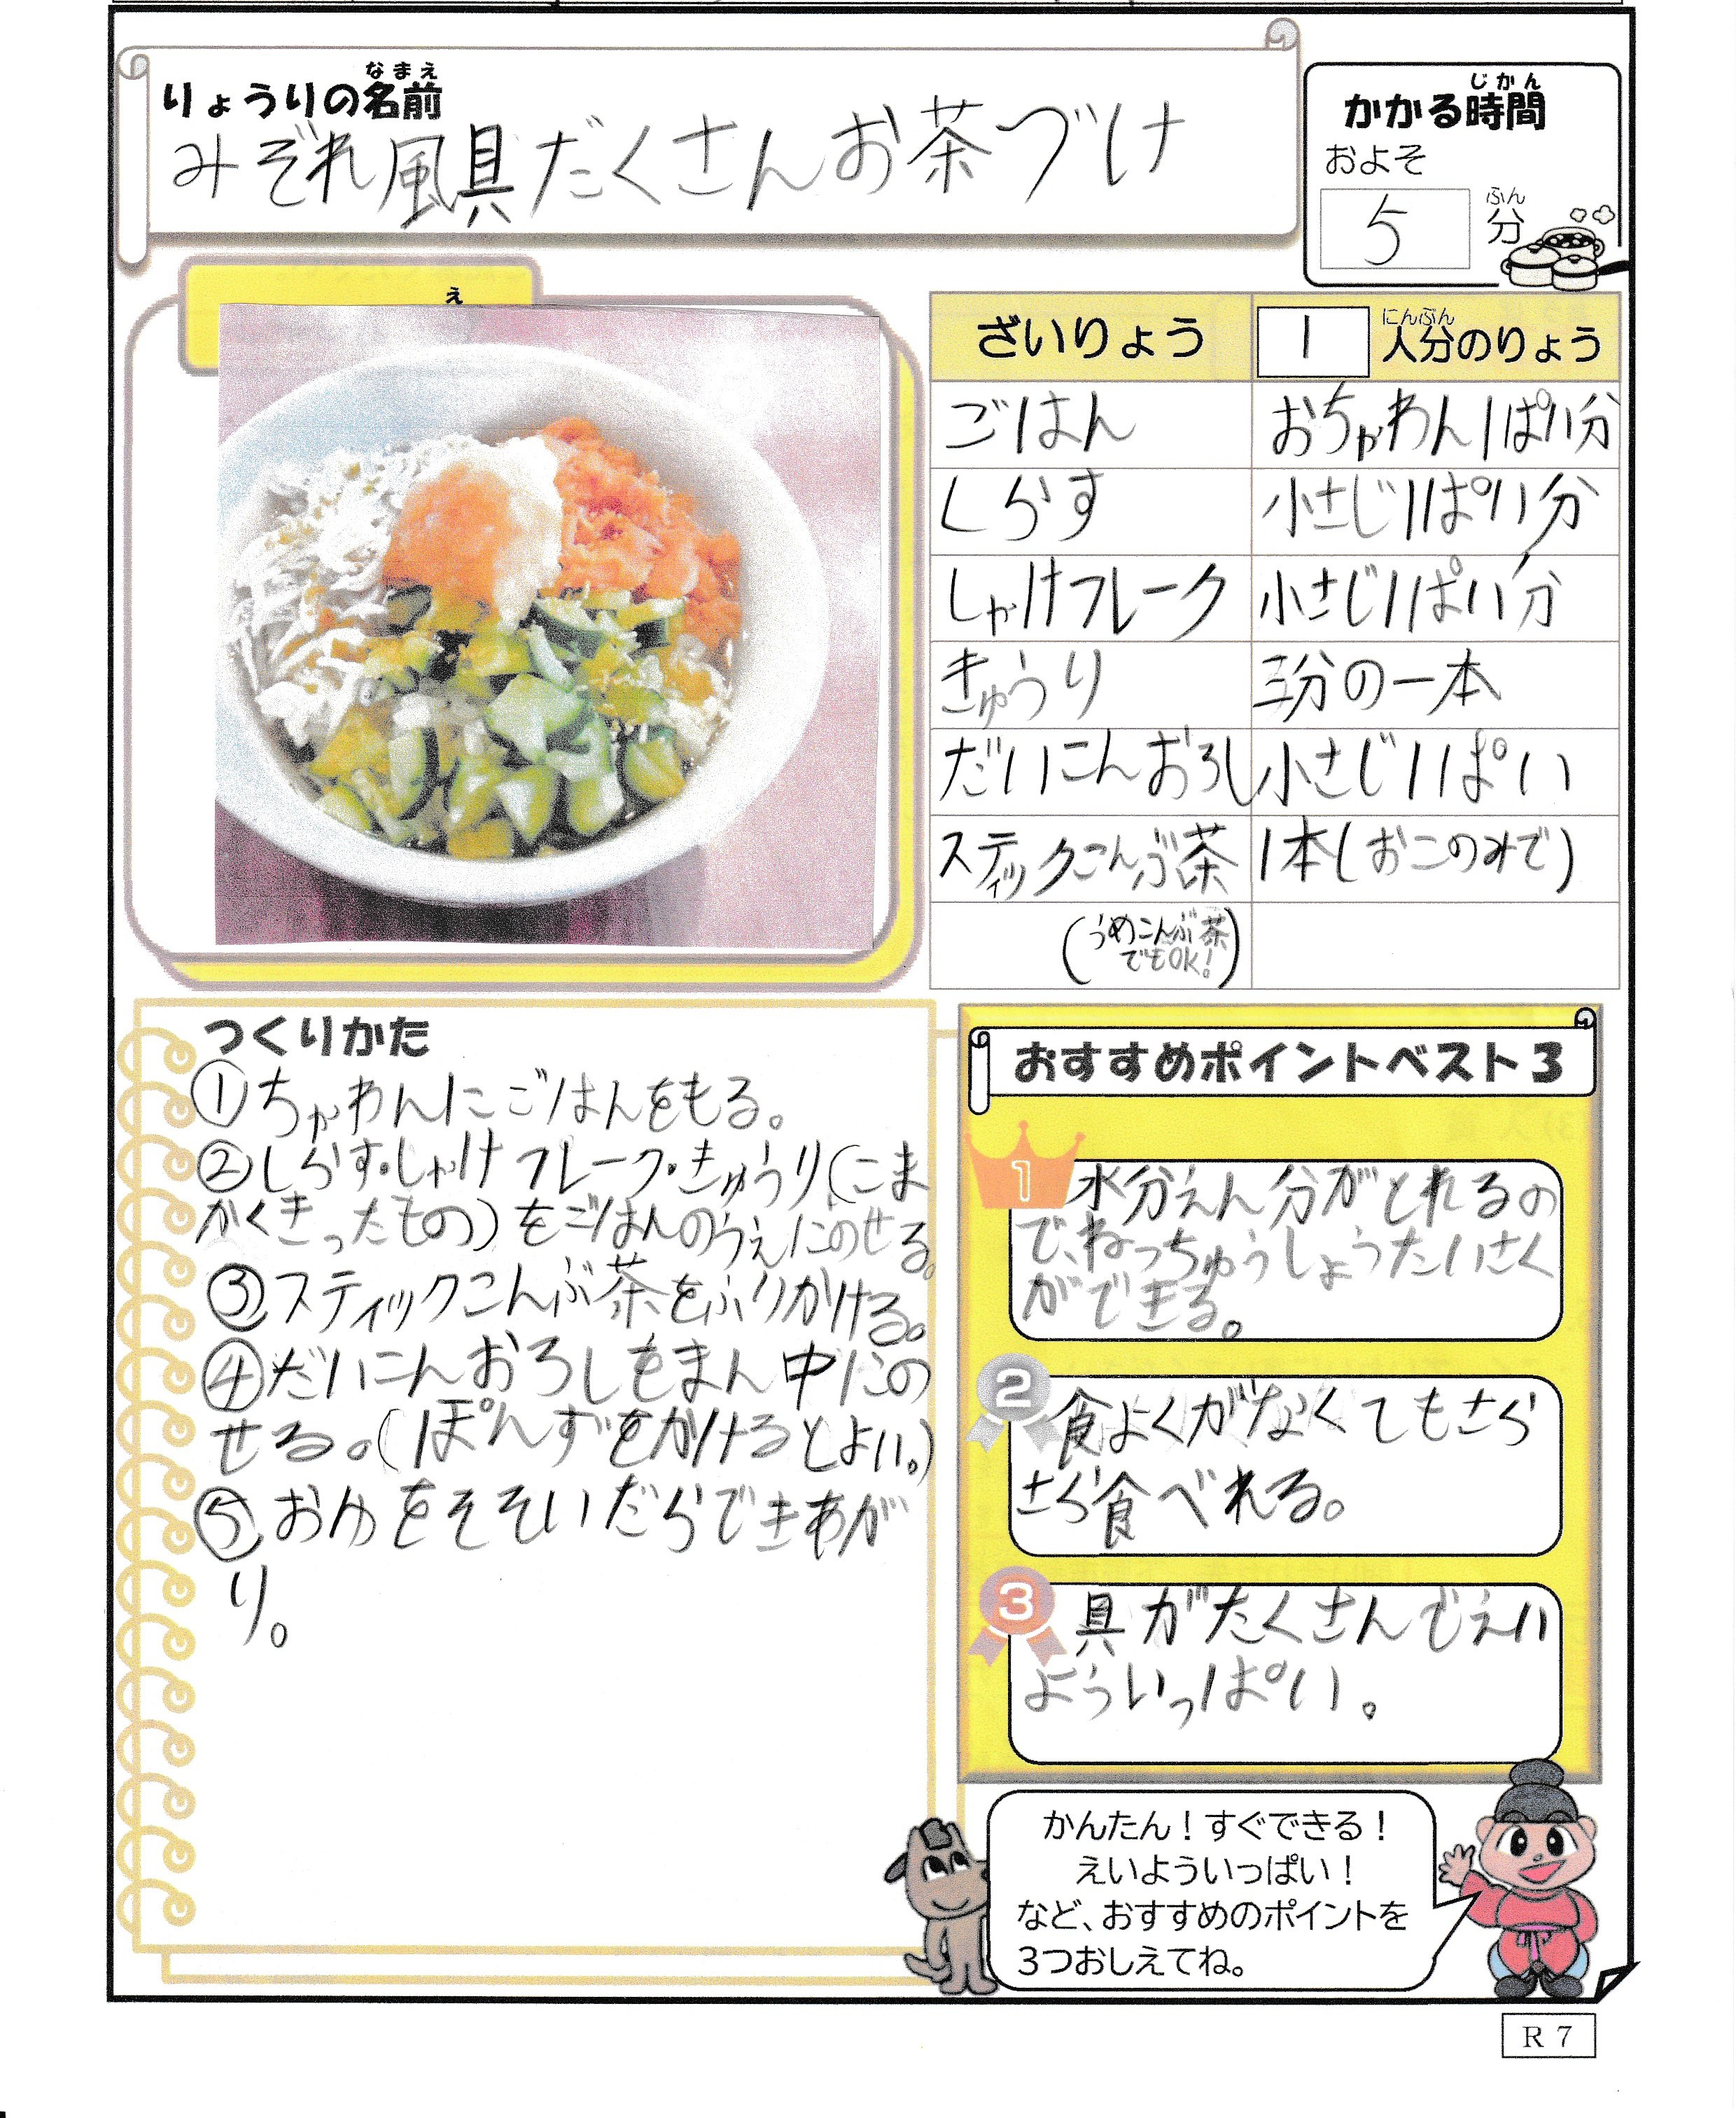 りょうりの名前
なまえ
みぞれ風具だくさんお茶づけ
かかる時間
じかん
およそ
5 分
ふん
え
ざいりょう 1 人分のりょう
にんぶん
ごはん おちゃわん1ぱい分
しらす 小さじ1ぱい分
しゃけフレーク 小さじ1ぱい分
きゅうり 三分の一本
だいこんおろし 小さじ1ぱい
スティックこんぶ茶 1本(おこのみで)
(うめこんぶ茶
でもOK!)
つくりかた
①ちゃわんにごはんをもる。
②しらす・しゃけフレーク・きゅうり(こま
かくきったもの)をごはんのうえにのせる。
③スティックこんぶ茶をふりかける。
④だいこんおろしをまん中にの
せる。(ぽんずをかけるとよい。)
⑤おゆをそそいだらできあが
り。
おすすめポイントベスト3
1 水分えん分がとれるの
で、ねっちゅうしょうたいさく
ができる。
2 食よくがなくてもさら
さら食べれる。
3 具がたくさんでえい
よういっぱい。
かんたん！すぐできる！
えいよういっぱい！
など、おすすめのポイントを
3つおしえてね。
R 7